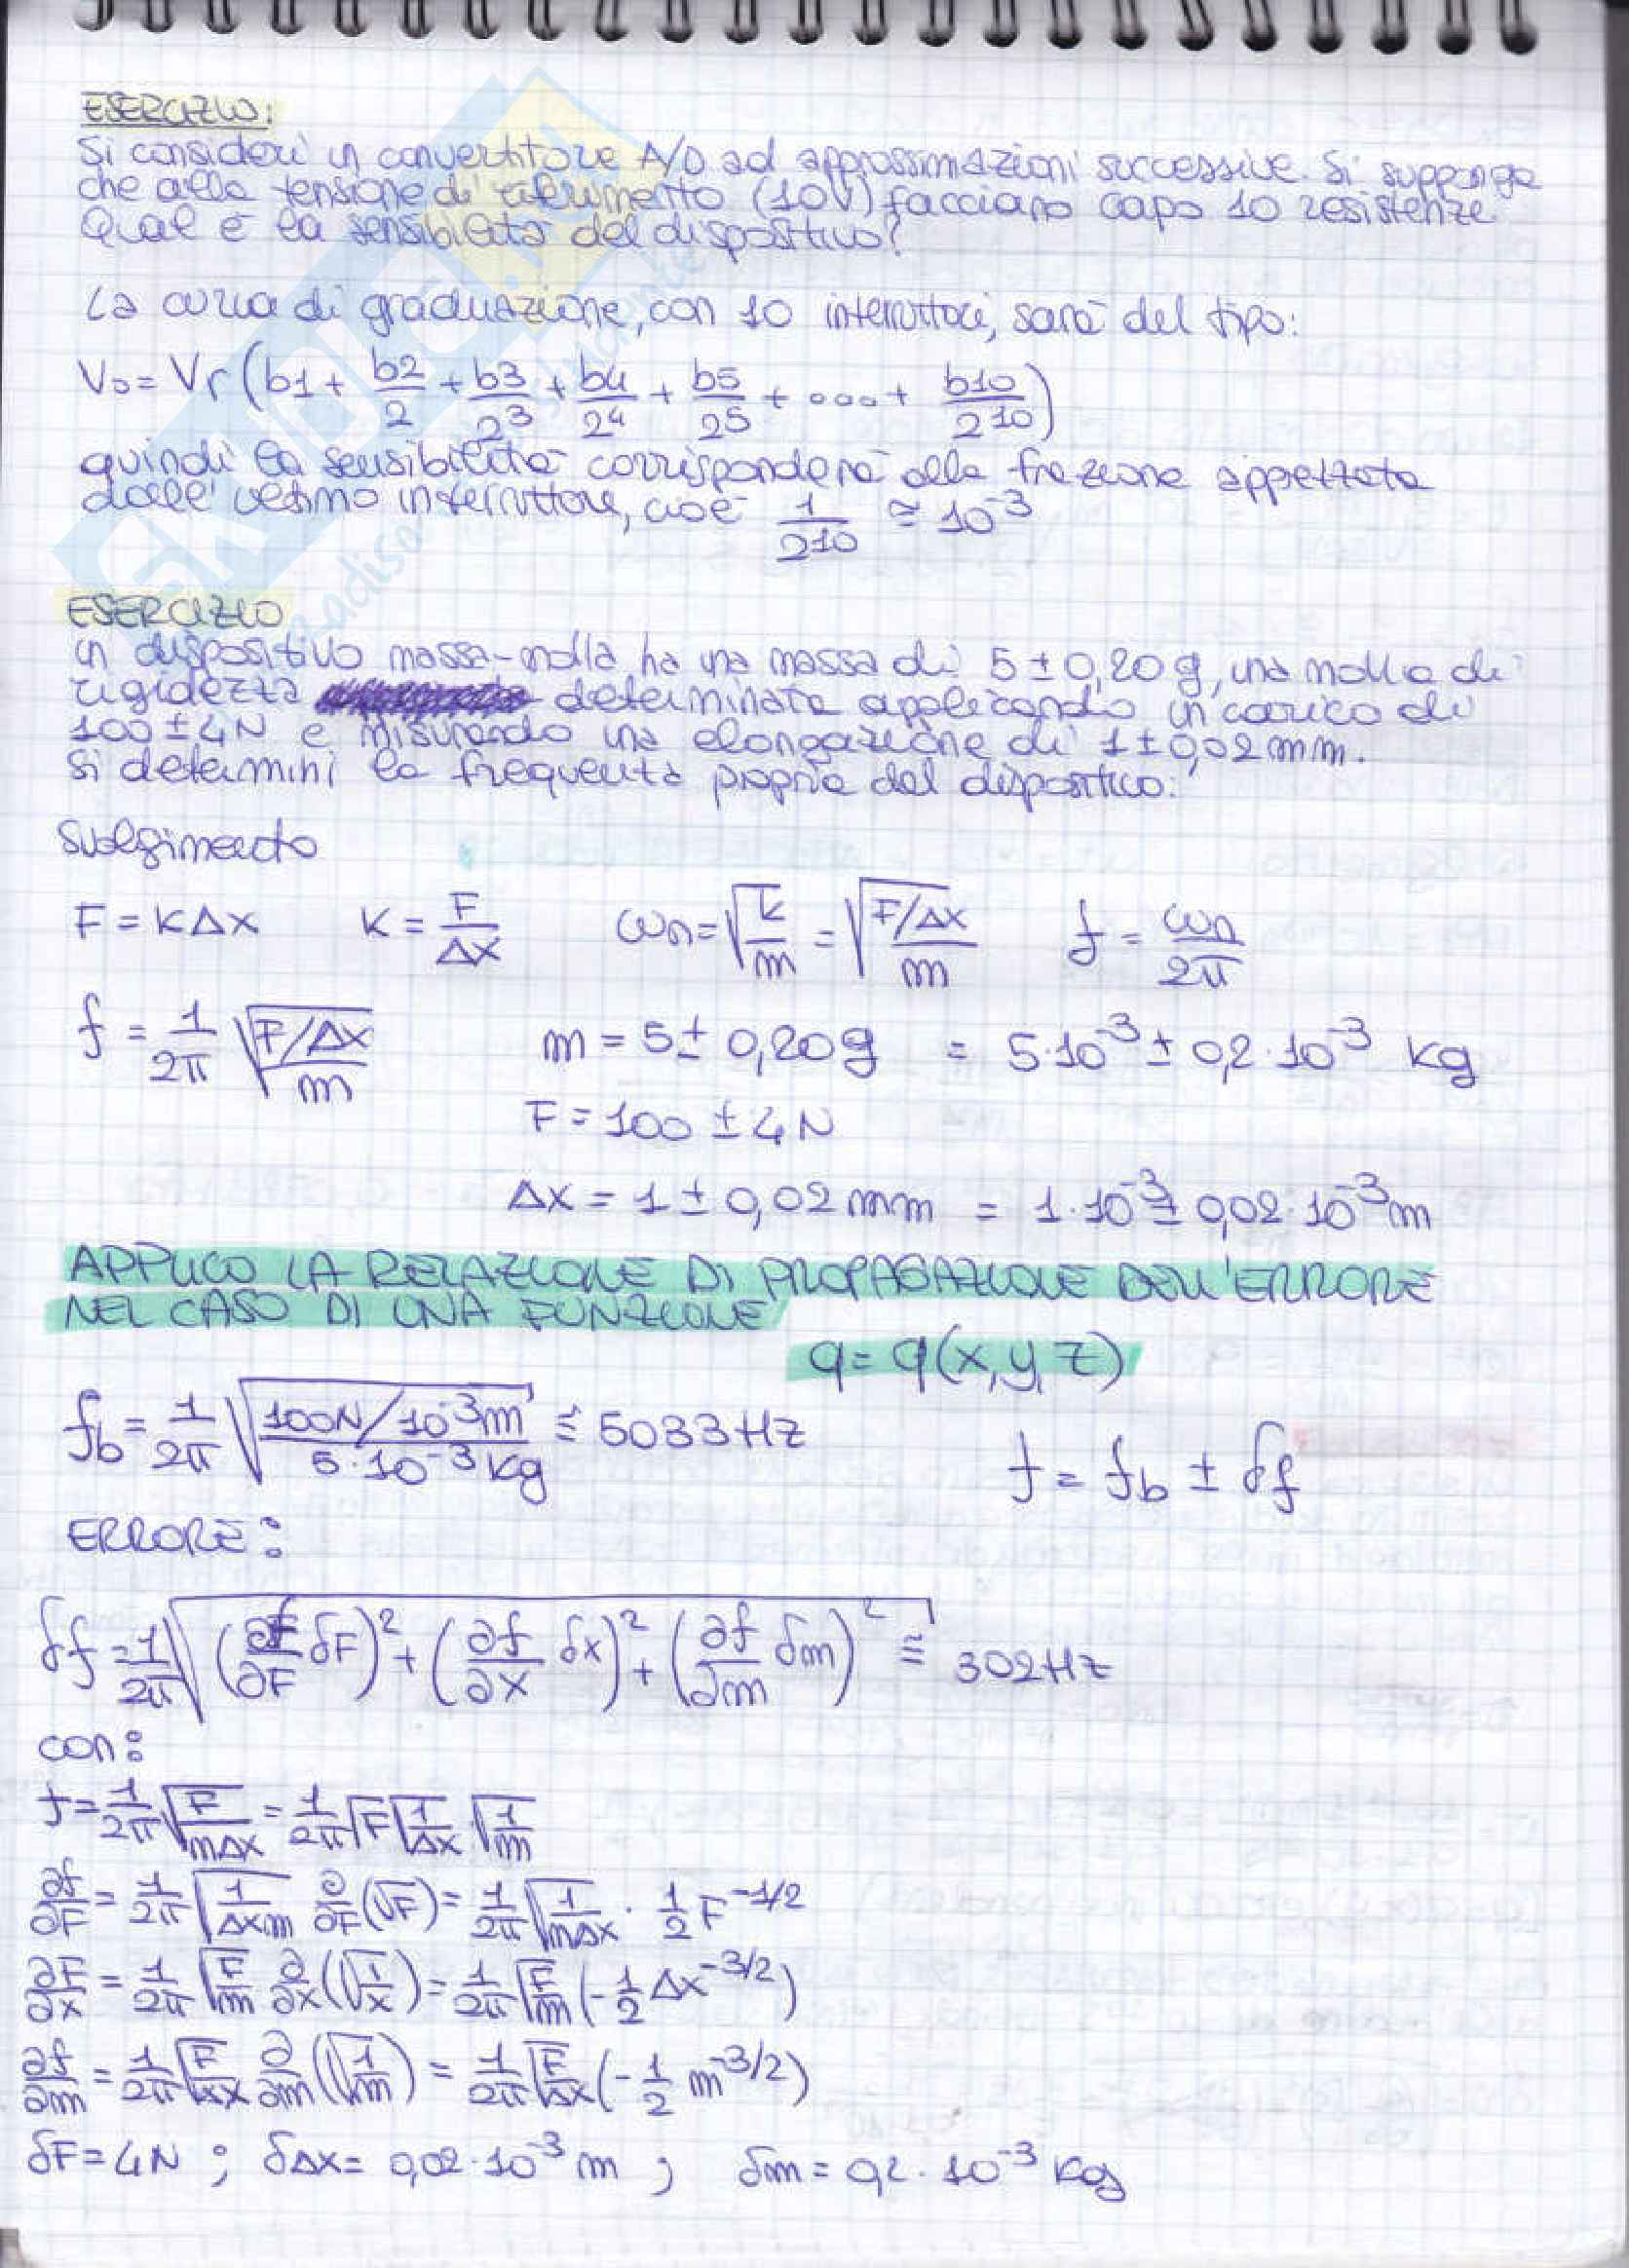 ESERCIZIO:
Si consideri un convertitore A/D ad approssimazioni successive. Si supponga
che alla tensione di riferimento (10V) facciano capo 10 resistenze
Qual è la sensibilità del dispositivo?
La curva di graduazione, con 10 interruttori, sarà del tipo:
Vo = Vr (b1 + b2/2 + b3/2^3 + b4/2^4 + b5/2^5 + .... + b10/2^10)
quindi la sensibilità corrisponderà alla frazione appettata
dall'ultimo interruttore, cioè 1/2^10 ≅ 10^-3
ESERCIZIO
Un dispositivo massa-molla ha una massa di 5 ± 0,20 g, una molla di
rigidezza determinata applicando un carico di
100 ± 4N e misurando una elongazione di 1 ± 0,02 mm.
Si determini la frequenza propria del dispositivo.
Svolgimento
F = KΔx K = F/Δx ωn = √(k/m) = √((F/Δx)/m) f = ωn/2π
f = 1/2π √((F/Δx)/m) m = 5 ± 0,20g = 5·10^-3 ± 0,2·10^-3 kg
F = 100 ± 4N
Δx = 1 ± 0,02 mm = 1·10^-3 ± 0,02·10^-3 m
APPLICO LA RELAZIONE DI PROPAGAZIONE DELL'ERRORE
NEL CASO DI UNA FUNZIONE
q = q(x,y,z)
fb = 1/2π √((100N/10^-3 m)/(5·10^-3 kg)) ≅ 5033 Hz f = fb ± δf
ERRORE:
δf = 1/2π √((∂f/∂F δF)^2 + (∂f/∂x δx)^2 + (∂f/∂m δm)^2) ≅ 302 Hz
con:
f = 1/2π √(F/mΔx) = 1/2π √F √(1/Δx) · √(1/m)
∂f/∂F = 1/2π √(1/Δxm) ∂/∂F (√F) = 1/2π √(1/mΔx) · 1/2 F^-1/2
∂F/∂x = 1/2π √(F/m) ∂/∂x (√(1/x)) = 1/2π √(F/m) (-1/2 Δx^-3/2)
∂f/∂m = 1/2π √(F/Δx) ∂/∂m (√(1/m)) = 1/2π √(F/Δx) (-1/2 m^-3/2)
δF = 4N ; δΔx = 0,02·10^-3 m ; δm = 0,2·10^-3 kg